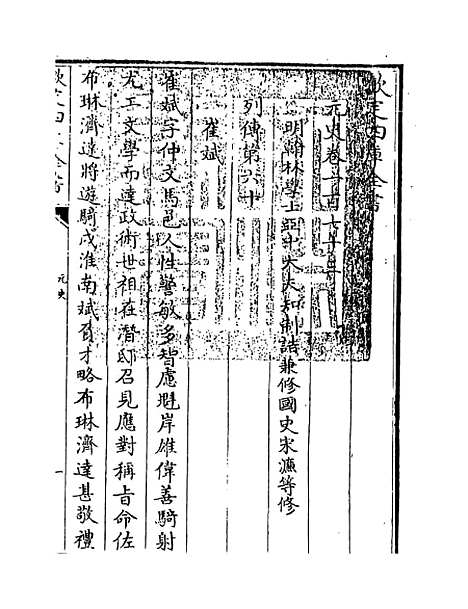 欽定四庫全書
元史卷一百七十三
明翰林學士亞中大夫知制誥兼修國史宋濂等修
列傳第六十
崔斌
崔斌字仲文馬邑人性警敏多智慮魁岸雄偉善騎射
尤工文學而達政術世祖在潛邸召見應對稱旨命佐
布琳濟達將遊騎戍淮南斌負才略布琳濟達甚敬禮
欽定四庫全書
元史
一